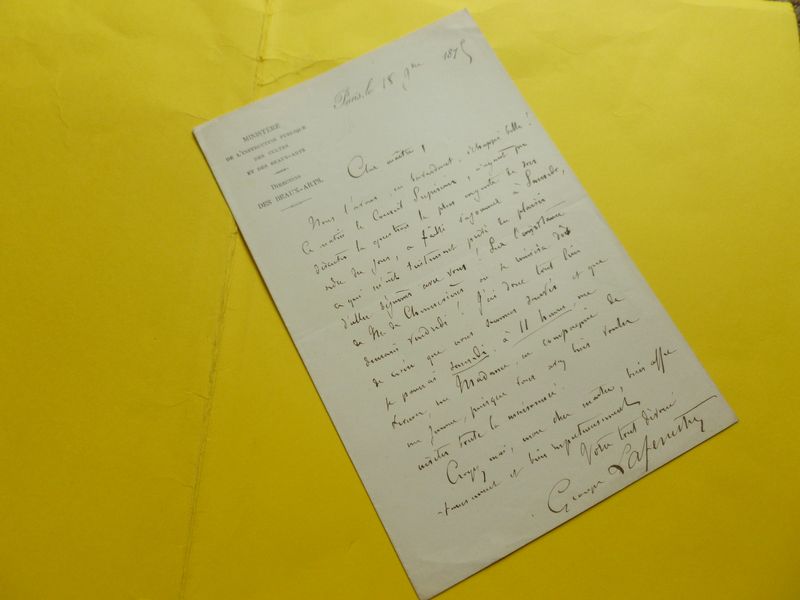 Paris, le 18 9bre 1875
MINISTÈRE
DE L'INSTRUCTION PUBLIQUE
DES CULTES
ET DES BEAUX-ARTS
DIRECTION
DES BEAUX-ARTS.
Cher maître,
Nous l'avons, en attendant, échappé belle !
Ce matin le Conseil Supérieur, n'ayant pu
discuter la question la plus urgente de son
ordre du jour, a fallu s'ajourner à Samedi,
ce qui m'eût tristement privé du plaisir
d'aller déjeuner avec vous !
de M. de Chennevières le ministre
demain vendredi ! J'ai donc tout lieu
de croire que nous sommes sauvés et que
je pourrai samedi, à 11 heures, me
trouver, Madame, en compagnie de
ma femme, puisque vous avez bien voulu
inviter toute la maisonnée.
Croyez moi, mon cher maître, bien affec
-tueusement et bien respectueusement
Votre tout dévoué
Georges Lafenestre